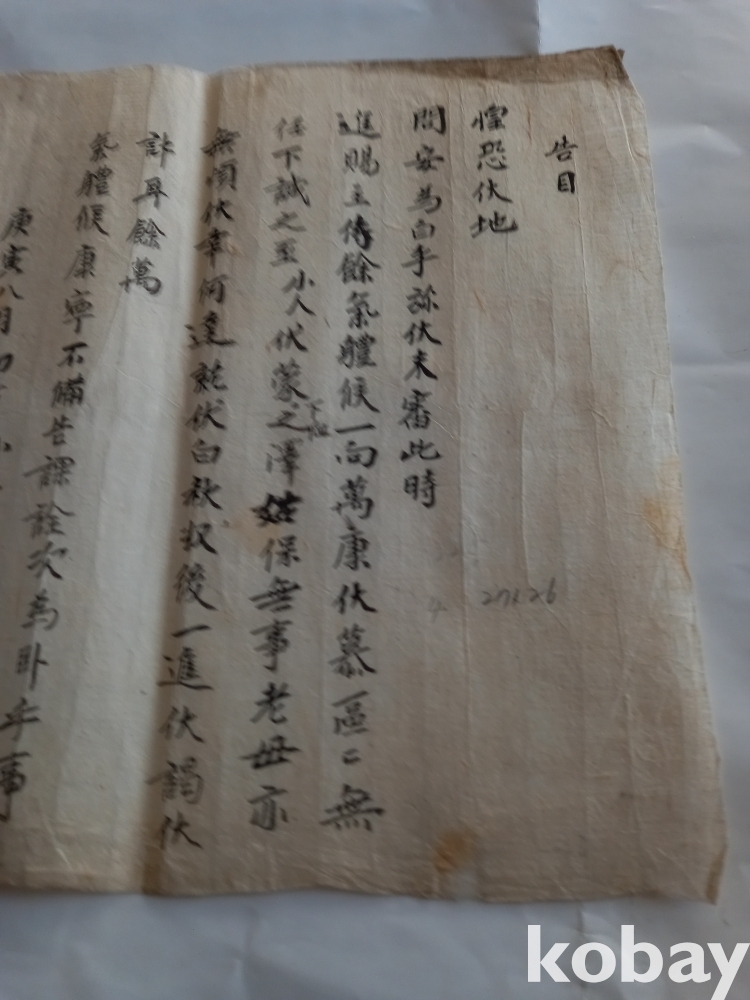 告目
惶恐伏地
問安爲白乎旀伏未審此時
進賜主侍餘氣體候一向萬康伏慕區〻無
任下誠之至小人伏蒙之澤姑保無事老母亦
無頃伏幸何達就伏白秋收後一進伏謁伏
計耳餘萬
氣體候康寧不備告課詮次爲卧乎事
庚寅八月初
27x26
kobay